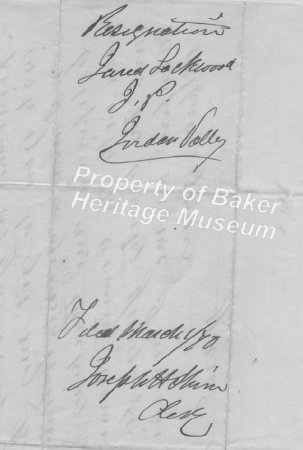 Resignation
Jared Lockwood
J. P.
Jordan Valley
Property of Baker
Heritage Museum
Filed March 1/70
Joseph H Shinn
Clerk